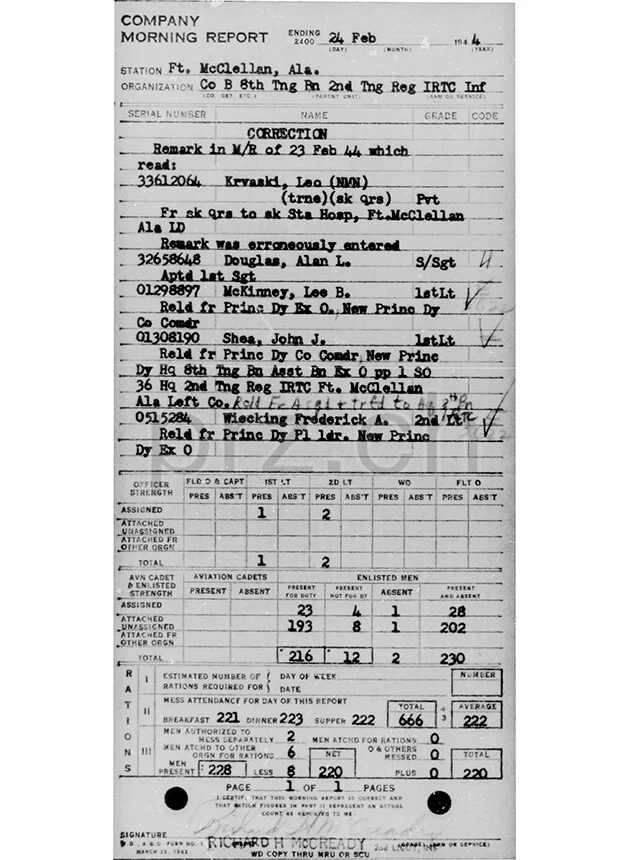 COMPANY
MORNING REPORT ENDING 2400 24 Feb 1944
(DAY) (MONTH) (YEAR)
STATION Ft. McClellan, Ala.
ORGANIZATION Co B 8th Tng Bn 2nd Tng Reg IRTC Inf
(CO. DET. ETC.) (PARENT UNIT) (ARM OR SERVICE)
SERIAL NUMBER NAME GRADE CODE
CORRECTION
Remark in M/R of 23 Feb 44 which
read:
33612064 Krvaski, Leo (NMN)
(trne)(sk qrs) Pvt
Fr sk qrs to sk Sta Hosp, Ft.McClellan
Ala LD
Remark was erroneously entered
32658648 Douglas, Alan L. S/Sgt
Aptd 1st Sgt
01298897 McKinney, Lee B. 1stLt
Reld fr Princ Dy Ex O. New Princ Dy
Co Comdr
01308190 Shea, John J. 1stLt
Reld fr Princ Dy Co Comdr New Princ
Dy Hq 8th Tng Bn Asst Bn Ex O pp 1 SO
36 Hq 2nd Tng Reg IRTC Ft. McClellan
Ala Left Co. Reld Fr Asgd + trfd to Hq 8th Bn
0515284 Wiecking Frederick A. 2nd Lt
Reld fr Princ Dy Pl ldr. New Princ
Dy Ex O
prz.ch
OFFICER STRENGTH FLD O & CAPT 1ST LT 2D LT WO FLT O
PRES ABS'T PRES ABS'T PRES ABS'T PRES ABS'T PRES ABS'T
ASSIGNED 1 2
ATTACHED UNASSIGNED
ATTACHED FR OTHER ORGN
TOTAL 1 2
AVN CADET & ENLISTED STRENGTH AVIATION CADETS ENLISTED MEN
PRESENT ABSENT PRESENT FOR DUTY PRESENT NOT FOR DY ABSENT PRESENT AND ABSENT
ASSIGNED 23 4 1 28
ATTACHED UNASSIGNED 193 8 1 202
ATTACHED FR OTHER ORGN
TOTAL 216 12 2 230
RATIONS
I ESTIMATED NUMBER OF RATIONS REQUIRED FOR DAY OF WEEK DATE NUMBER
II MESS ATTENDANCE FOR DAY OF THIS REPORT TOTAL AVERAGE
BREAKFAST 221 DINNER 223 SUPPER 222 666 ÷ 3 222
III MEN AUTHORIZED TO MESS SEPARATELY 2 MEN ATCHD FOR RATIONS 0
MEN ATCHD TO OTHER ORGN FOR RATIONS 6 NET O & OTHERS MESSED 0 TOTAL
MEN PRESENT 228 LESS 8 220 PLUS 0 220
PAGE 1 OF 1 PAGES
I CERTIFY THAT THIS MORNING REPORT IS CORRECT AND
THAT RATION FIGURES IN PART III REPRESENT AN ACTUAL
COUNT AS REPORTED TO ME
Richard H McCready
SIGNATURE RICHARD H McCREADY 2nd Lieut, Inf
(GRADE) (ARM OR SERVICE)
W.D., A.G.O. FORM NO. 1
MARCH 25, 1943 WD COPY THRU MRU OR SCU